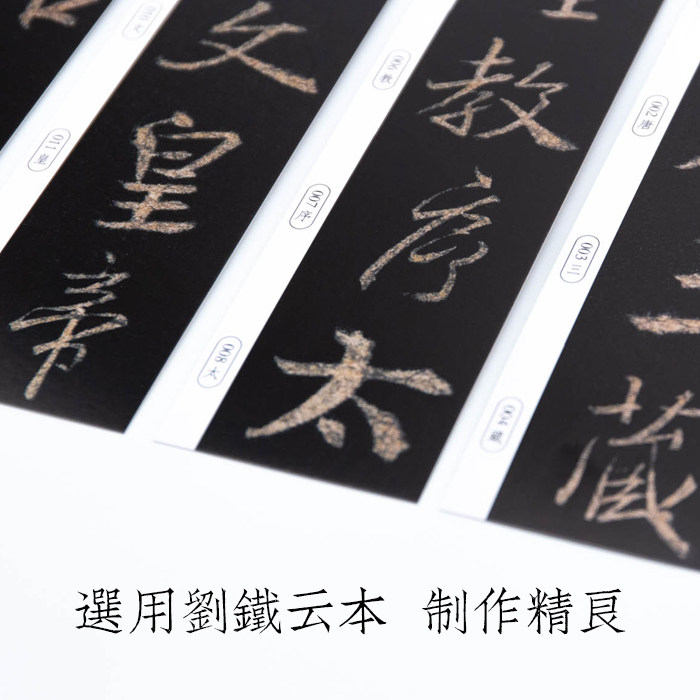 三
藏
聖
教
序
太
文
皇
帝
002 唐
003 三
004 藏
006 教
007 序
008 太
011 皇
選用劉鐵云本 制作精良